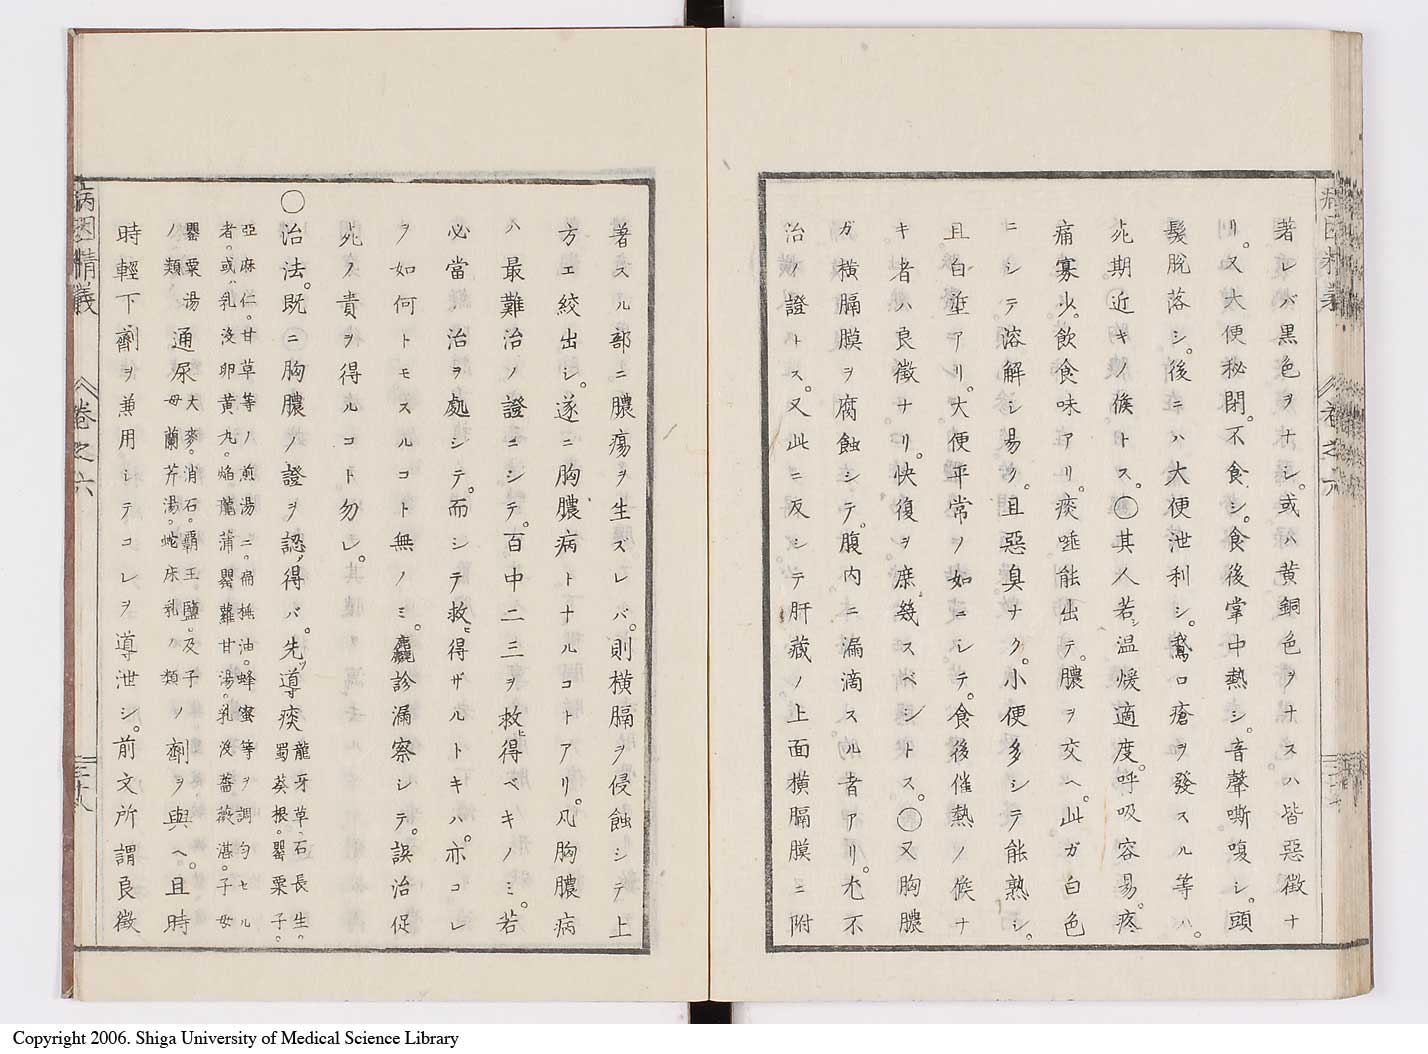 著レバ黒色ヲナシ。或ハ黄銅色ヲナスハ皆惡徴ナ
リ。又大便秘閉。不食シ。食後掌中熱シ。音聲嘶嗄シ。頭
髮脱落シ。後ニハ大便泄利シ。鵞口瘡ヲ發スル等ハ。
死期近キノ候トス。〇其人若シ温煖適度。呼吸容易。疼
痛寡少。飲食味アリ。痰唾能出テ。膿ヲ交ヘ。此ガ白色
ニシテ溶解シ易ク。且惡臭ナク。小便多シテ能熟シ。
且白垽アリ。大便平常ノ如ニシテ。食後催熱ノ候ナ
キ者ハ良徴ナリ。快復ヲ庶幾スベシトス。〇又胸膿
ガ横膈膜ヲ腐蝕シテ。腹内ニ漏滴スル者アリ。尤不
治ノ證トス。又此ニ反シテ肝藏ノ上面横膈膜ニ附
著スル部ニ膿瘍ヲ生ズレバ。則横膈ヲ侵蝕シテ上
方エ絞出シ。遂ニ胸膿病トナルコトアリ。凡胸膿病
ハ最難治ノ證ニシテ。百中二三ヲ救ヒ得ベキノミ。若
必當ノ治ヲ処シテ。而シテ救ヒ得ザルトキハ。亦コレ
ヲ如何トモスルコト無ノミ。麤診漏察シテ。誤治促
死ノ責ヲ得ルコト勿レ。
〇治法。既ニ胸膿ノ證ヲ認メ得バ。先ツ導痰龍牙草。石長生。
蜀葵根。罌粟子。
亞麻仁。甘草等ノ煎湯ニ。扁桃油。蜂蜜等ヲ調勻セル
者。或ハ乳没卵黄丸。焔龍蒲罌蘿甘湯。乳没薔薇湛。子母
罌粟湯
ノ類通尿大麥。消石。覇王鹽。及子
母蘭芹湯。蛇床乳ノ類ノ劑ヲ與ヘ。且時
時輕下劑ヲ兼用シテコレヲ導泄シ。前文所謂良徴
病因精義
卷之六
三十八